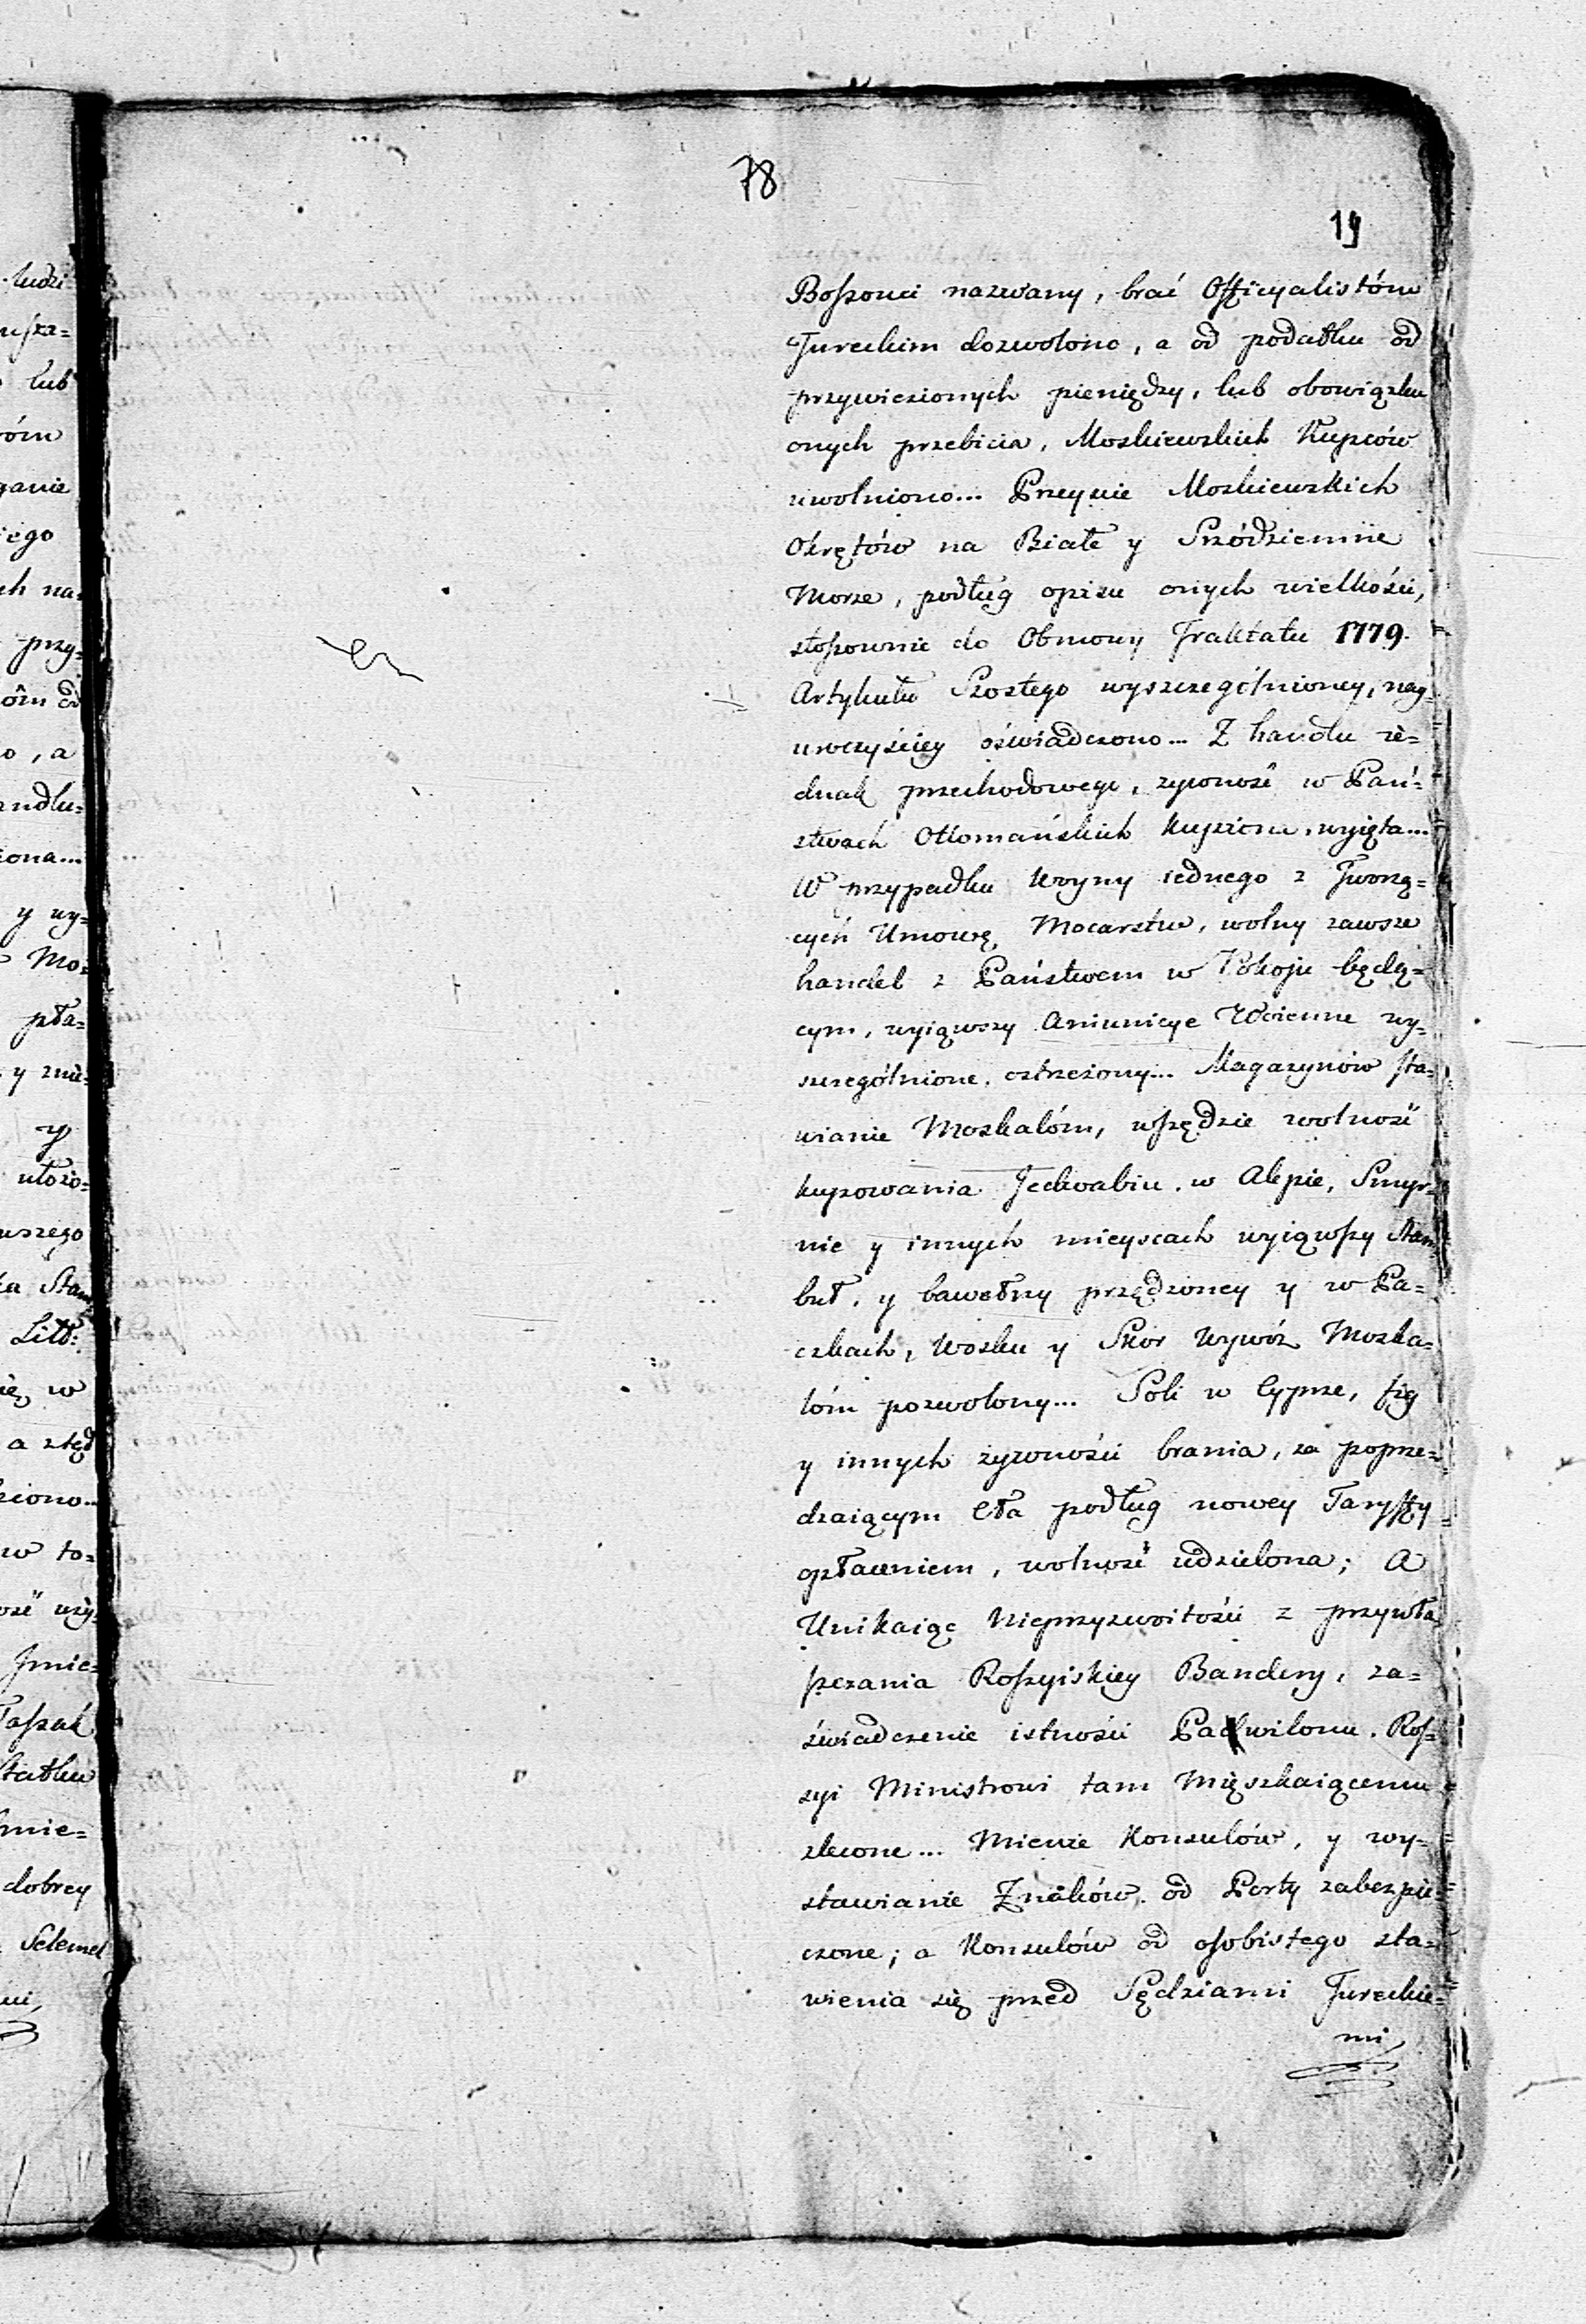 78
19
Boſzouci nazwany, brać Officyalistóm
Tureckim dozwolono, a od podatku od
przywiezionych pieniędzy, lub obowiązku
onych przebicia, Moskiewskich Kupców
uwolniono... Przeyscie Moskiewskich
Okrętów na Białe y Srzódziemne
Morze, podług opisu onych wielkości,
stoſownie do Obmowy Traktatu 1779.
Artykułu Szostego wyszczegolnioney, nay-
uroczyściey oświadczono... Z handlu ie=
dnak przechodowego, żywność w Pań=
stwach Ottomańskich kupiona, wyięta...
W przypadku Woyny iednego z Tworzą=
cych Umowę, Mocarstw, wolny zawsze
handel z Państwem w Pokoju będą=
cym, wyiąwszy Amunicye Woienne wy=
szczególnione, ostrzeżony... Magazynów sta=
wianie Moskalóm, wſzędzie wolność
kupowania Jedwabiu, w Alepie, Smyr=
nie y innych mieyscach wyiąwſzy Stam
buł, y bawełny przędzoney y w Pa=
czkach, Wosku y Skor Wywóz Moska=
lóm pozwolony... Soli w Cyprze, fig
y innych żywności brania, za poprze=
dzaiącym Cła podług nowey Taryffy
opłaceniem, wolność udzielona; A
Unikaiąc Nieprzyzwoitości z przywła
ſzczania Roſzyiskiey Bandery, za=
świadczenie istności Pawilonu, Roſ=
syi Ministrowi tam Mięszkaiącemu
zlecone... Mienie Konsulów, y wy=
stawianie Znaków, od Porty zabezpie=
czone; a Konsulów od oſobistego sta=
wienia się przed Sędziami Tureckie=
mi,